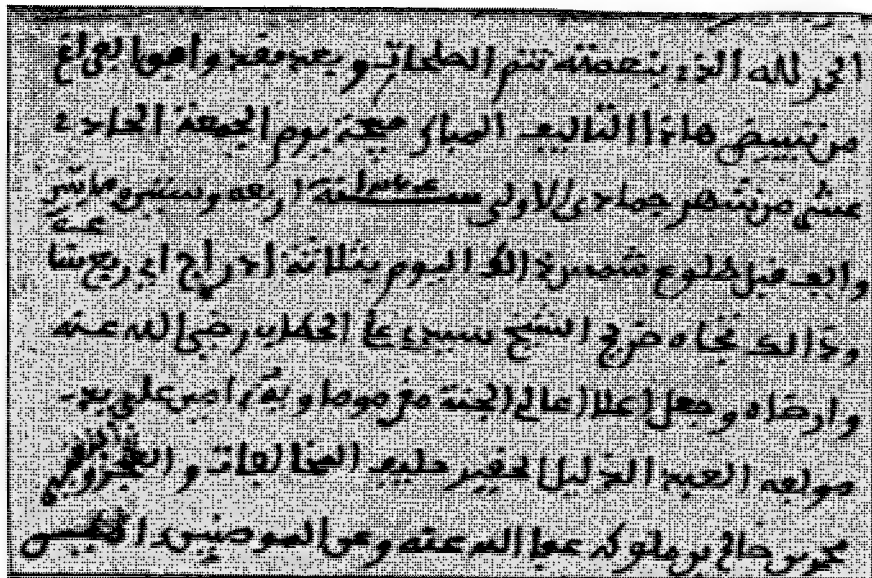 الحمد لله الذي بنعمته تتم الصلحات وبعد فقد وافوا بفراغ
من تبييض هاذا التاليف المبارك صبيحة يوم الجمعة الحادي
عشر من شهر جمادى الاولى سنة اربعه وستين مايتين
والف قبل طلوع شمس ذالك اليوم بثلاثة ادراج اي ربع ساعة
وذالك تجاه ضريح الشيخ سيدي علي الحطاب رضي الله عنه
وارضاه وجعل اعلا اعالي الجنة ماواه امين على يد
مولفه العبد الذليل الحقير حليف المخالفات والعجز
محمد بن صالح بن ملوكه عفا الله عنه وعن المومنين